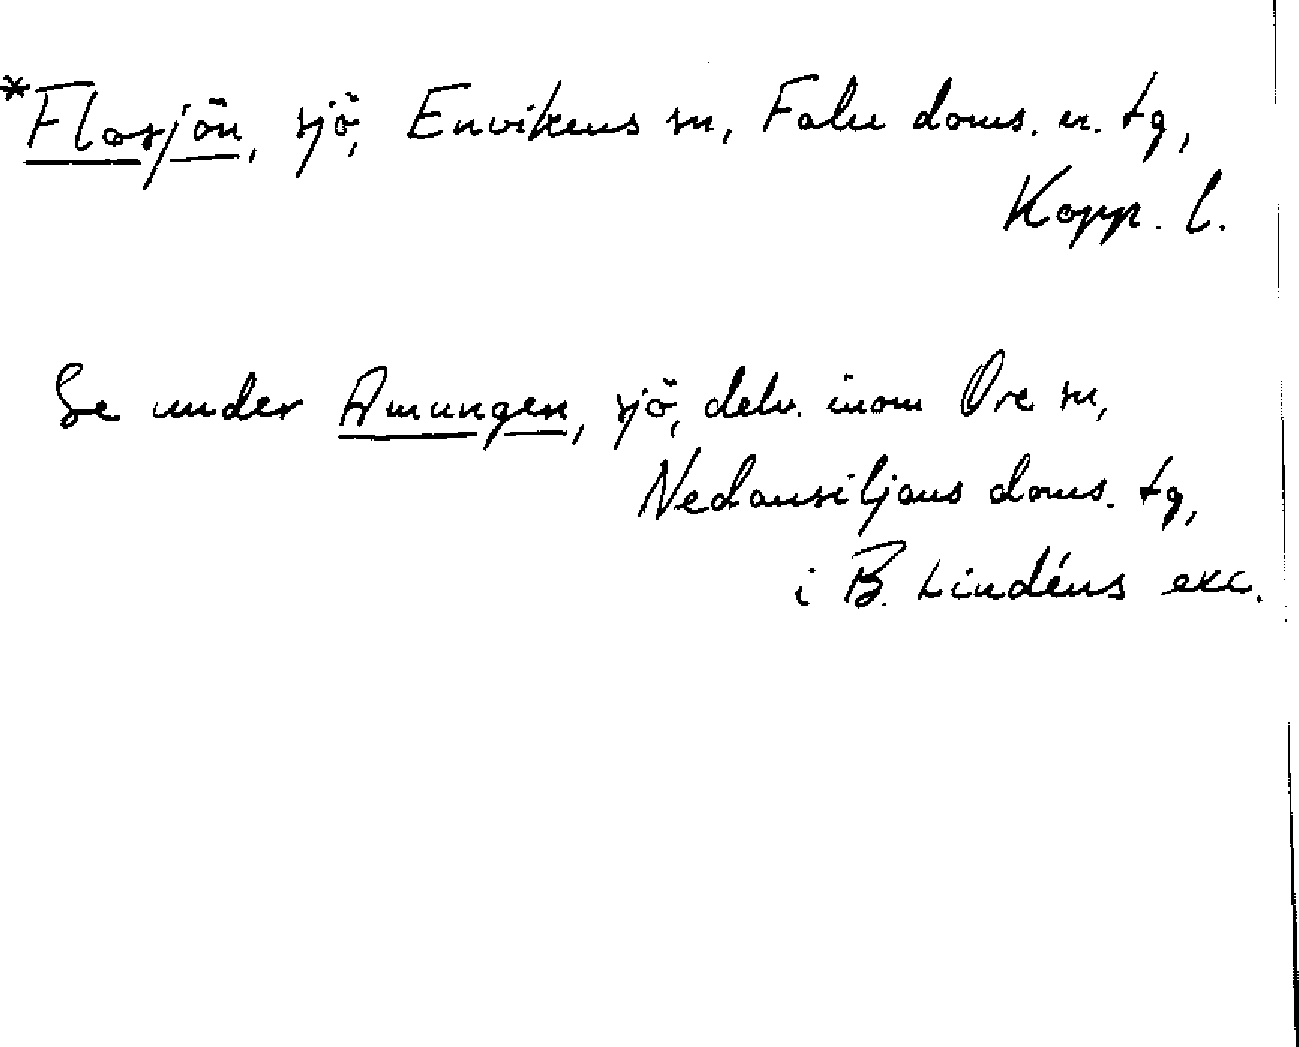 *Flosjön, sjö, Envikens sn, Falu doms. n. tg,
Kopp. l.
Se under Amungen, sjö, delv. inom Ore sn,
Nedansiljans doms. tg,
i B. Lindéns exc.